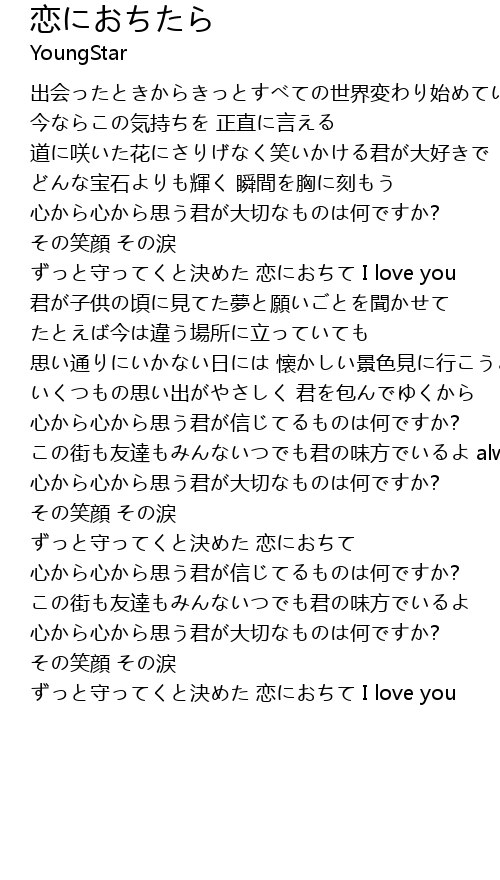 恋におちたら
YoungStar
出会ったときからきっとすべての世界変わり始めてい
今ならこの気持ちを 正直に言える
道に咲いた花にさりげなく笑いかける君が大好きで
どんな宝石よりも輝く 瞬間を胸に刻もう
心から心から思う君が大切なものは何ですか?
その笑顔 その涙
ずっと守ってくと決めた 恋におちて I love you
君が子供の頃に見てた夢と願いごとを聞かせて
たとえば今は違う場所に立っていても
思い通りにいかない日には 懐かしい景色見に行こう
いくつもの思い出がやさしく 君を包んでゆくから
心から心から思う君が信じてるものは何ですか?
この街も友達もみんないつでも君の味方でいるよ
心から心から思う君が大切なものは何ですか?
その笑顔 その涙
ずっと守ってくと決めた 恋におちて
心から心から思う君が信じてるものは何ですか?
この街も友達もみんないつでも君の味方でいるよ
心から心から思う君が大切なものは何ですか?
その笑顔 その涙
ずっと守ってくと決めた 恋におちて I love you